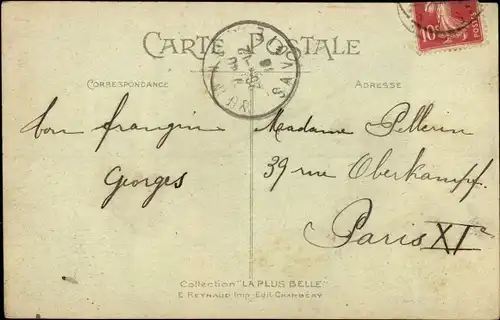 CARTE POSTALE
CORRESPONDANCE
ADRESSE
bon frangin
Georges
Madame Pellerin
39 rue Oberkampf.
Paris XIe
Collection "LA PLUS BELLE"
E. REYNAUD Imp-Edit. CHAMBÉRY
10
SAVOIE